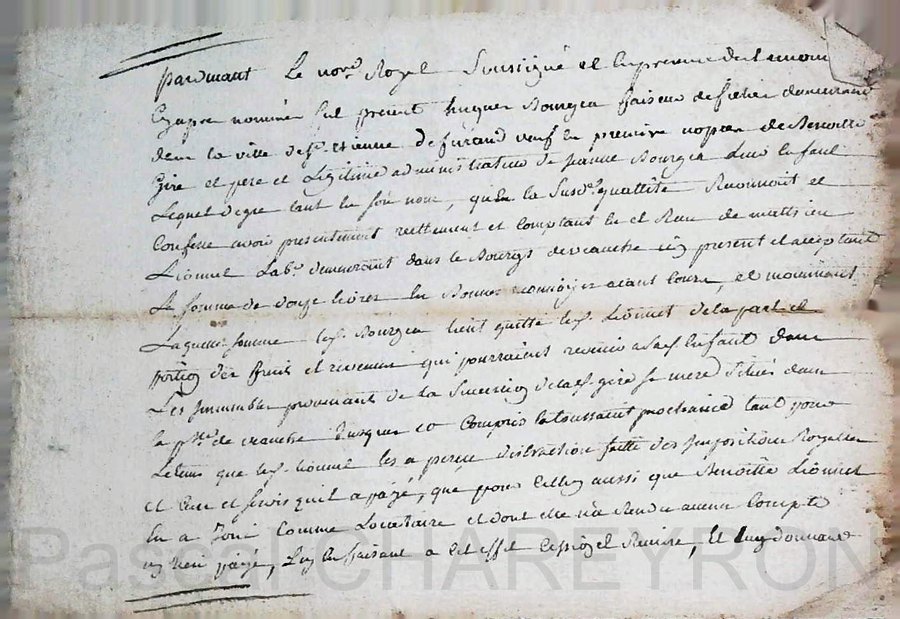 pardevant Le nore. Royal Soussigné et En presence des temoins
Cyapres nommés fut present hugues Bourgea faiseur de fiches demeurant
dans la ville de st. etienne de furand veuf En premiere nopces de Benoitte
Gire et pere et Legitime administrateur de jeanne Bourgea Leur Enfant
Lequel degre tant En son nom, qu'En la Susde. quallité Reconnoit et
Confesse avoir presentement reellement et comptant Eu et Reçu de mathieu
Lionnet Labr. demeurant dans le Bourg de cy present et acceptant
La somme de douze livres En Bonnes monnoyes ayant cours, et moiennant
Laquelle somme led. Bourgea tient quitte led. Lionnet de la part et
portion des fruits et revenus qui pourraient revenir a sad. Enfant dans
Les Immeubles provenants de la Succession de lad. gire sa mere Situés dans
la psse. de jusques et Compris la toussaint prochaine tant pour
Letems que led. Lionnet les a perçu distraction faitte des Impositions Royalles
et Cens et servis qu'il a payé, que pour Celluy aussi que Benoitte Lionnet
En a Joui Comme Locataire et dont elle n'a Rendu aucun Compte
ny rien payé, Luy En faisant a cet effet Remise, Et Luy donnant
Pascal CHAREYRON